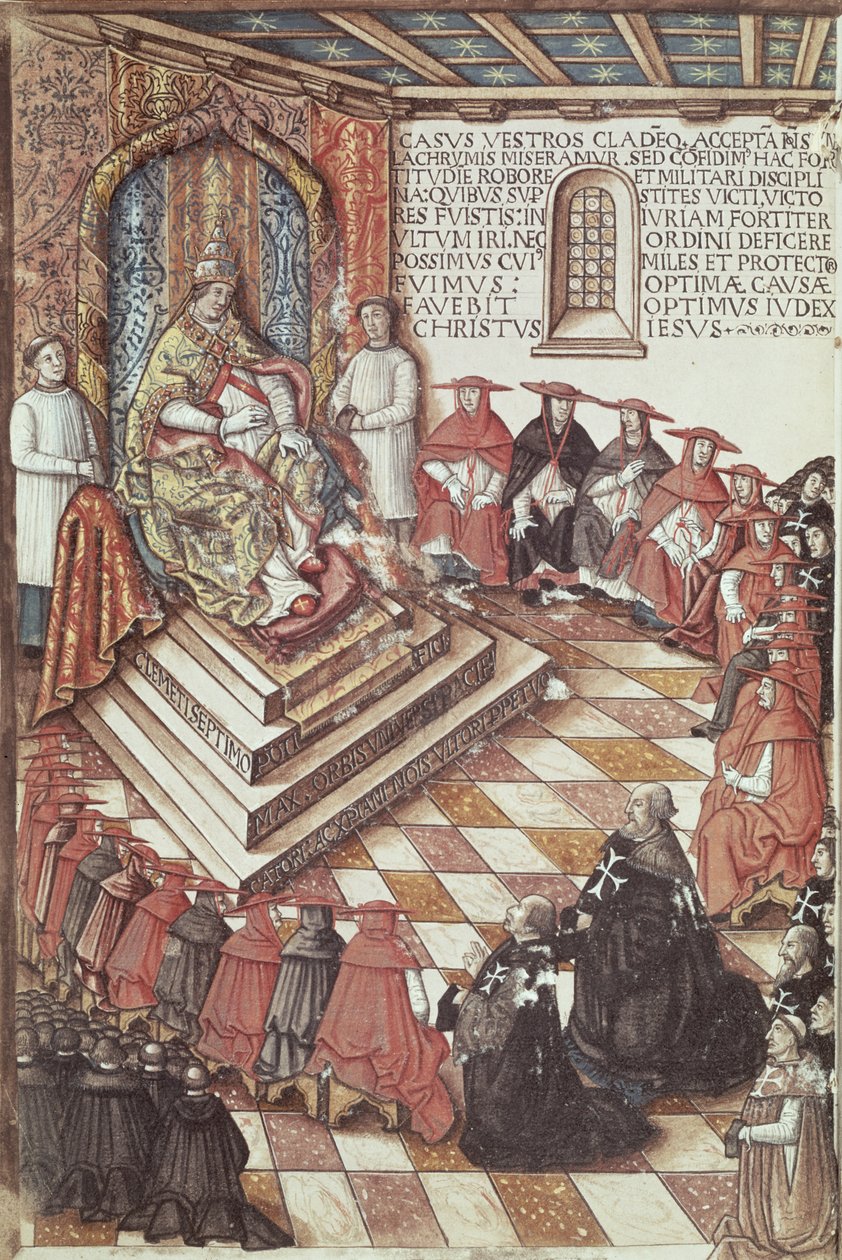 CASUS VESTROS CLADĒQ. ACCEPTĀ IN
LACHRYMIS MISERAMUR. SED CŌFIDIM' HAC FOR
TITUDIE ROBORE ET MILITARI DISCIPLI
NA: QUIBUS SUP STITES VICTI, VICTO
RES FUISTIS: IN IURIAM FORTITER
ULTUM IRI. NEQ ORDINI DEFICERE
POSSIMUS CUI' MILES ET PROTECTOR
FUIMUS: OPTIMÆ CAUSÆ
FAVEBIT OPTIMUS IUDEX
CHRISTUS IESUS
CLEMETI SEPTIMO PŌTI FICI
MAX. ORBIS UNIVERSI PACIFI
CATORI AC XPIANI NOIS ULTORI PPETUO